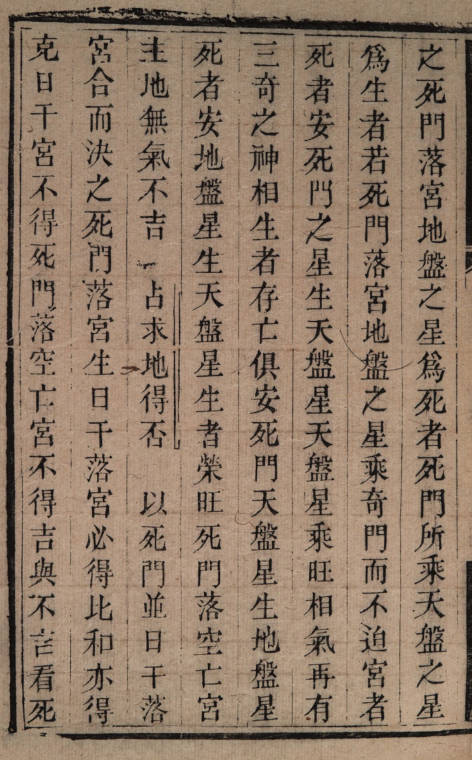 之死門落宮地盤之星爲死者死門所乘天盤之星
爲生者若死門落宮地盤之星乘奇門而不迫宮者
死者安死門之星生天盤星天盤星乘旺相氣再有
三奇之神相生者存亡俱安死門天盤星生地盤星
死者安地盤星生天盤星生者榮旺死門落空亡宮
主地無氣不吉 占求地得否 以死門並日干落
宮合而決之死門落宮生日干落宮必得比和亦得
克日干宮不得死門落空亡宮不得吉與不吉看死